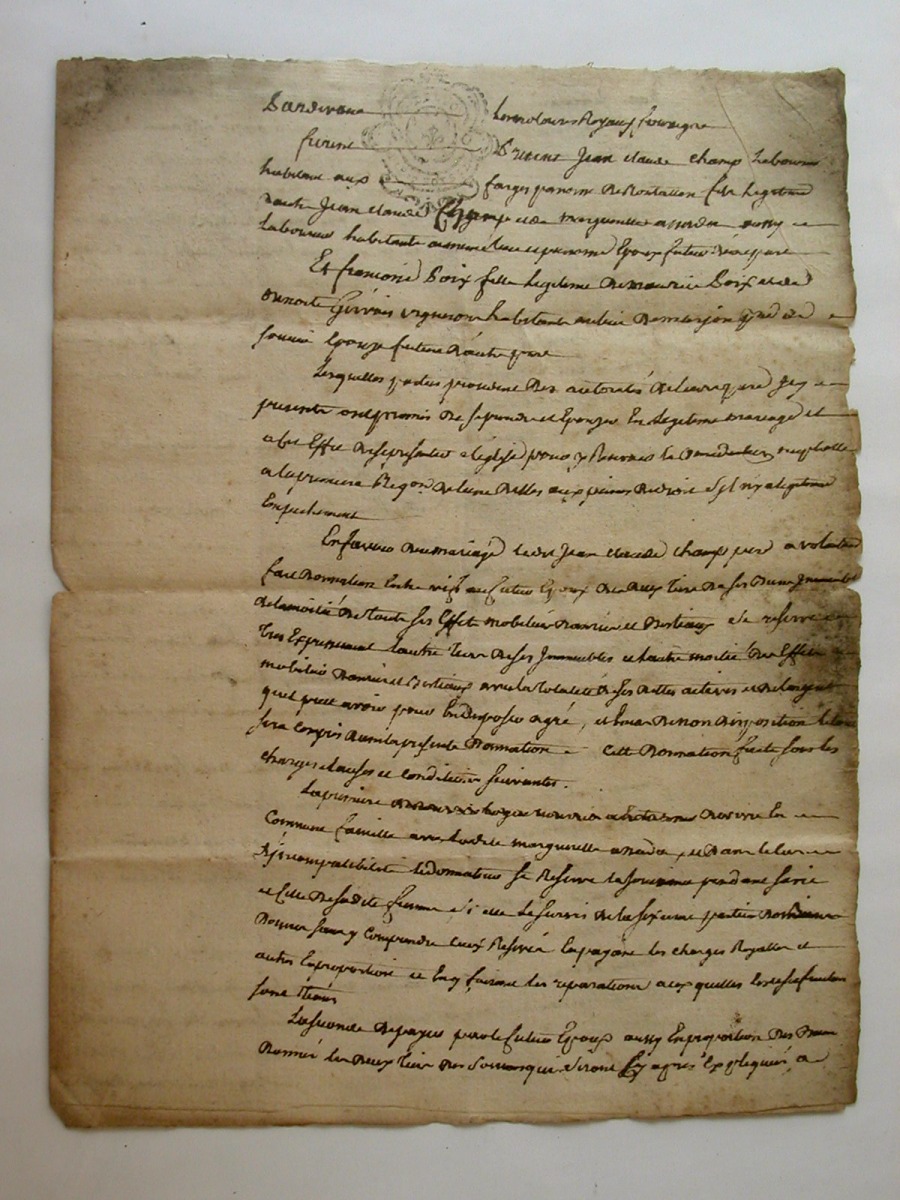 Pardevant les notaires Royaux soussignés
furent présens Jean Claude Champ Laboureur
habitant aux farges paroisse de fils legitime
d'autre Jean Claude Champ et de marguerite aussy
Laboureur habitants au mesme lieu et paroisse Epoux futur d'une part
Et françoise Poix fille legitime de maurice Poix et de
Benoite Gervais vigneron habitants au lieu de
Epouse future d'autre part
Lesquelles parties procedant des autorités de leurs peres icy
presents ont promis de se prendre et Epouser En legitime mariage et
a cet Effet de se presenter a l'église pour y Recevoir la Benediction nuptialle
a la premiere Requon de l'une d'elles aux peines de droit s'il n'y a legitime
Empechement
En faveur du mariage ledit Jean Claude Champ pere a volontairement
fait Donnation Entre vifs au futur Epoux de Deux tiers De ses Biens Immeubles
de la moitié de touts ses Effets mobiliers Danrées et Bestiaux et se reserve
tres Expressement l'autre tiers De ses Immeubles et l'autre moitié Des Effets
mobiliers Danrées et Bestiaux avec la totalité de ses dettes actives et de l'argent
qu'il peut avoir pour En disposer a gré, et En cas De non disposition le tout
sera compris dans la presente Donnation Cette Donnation faite sous les
charges clauses et conditions suivantes.
La premiere De vivre En
Commune famille avec ladite marguerite et Dans le cas
D'jncompatibilité le donnateur se Reserve la jouissance pendant sa vie
et celle De sadite femme si elle le survis de la sixieme partie Des Biens
Donnés sans y Comprendre ceux Reservés En payant les charges Royalles et
autres En proportion et En y faisant les reparations auxquelles les usufruitiers
sont tenus
La seconde De payer par le futur Epoux aussy En proportion Des Biens
Donnés les deux tiers des sommes qui seront Cy apres Expliquées a